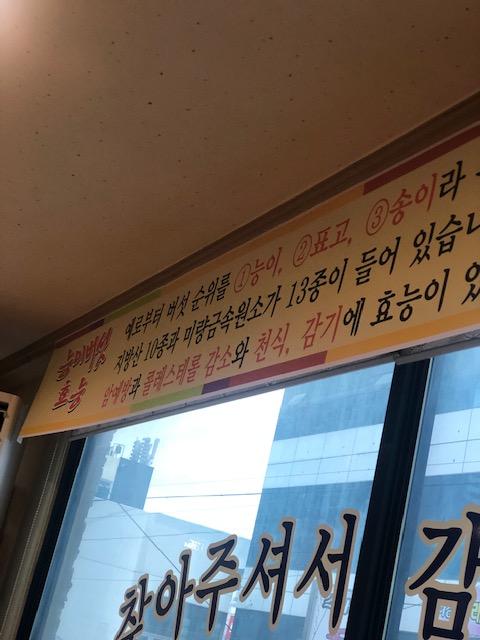 능이버섯
효능
예로부터 버섯 순위를 ①능이, ②표고, ③송이라
지방산 10종과 미량금속원소가 13종이 들어 있습니
암예방과 콜레스테롤 감소와 천식, 감기에 효능이 있
찾아주셔서 감